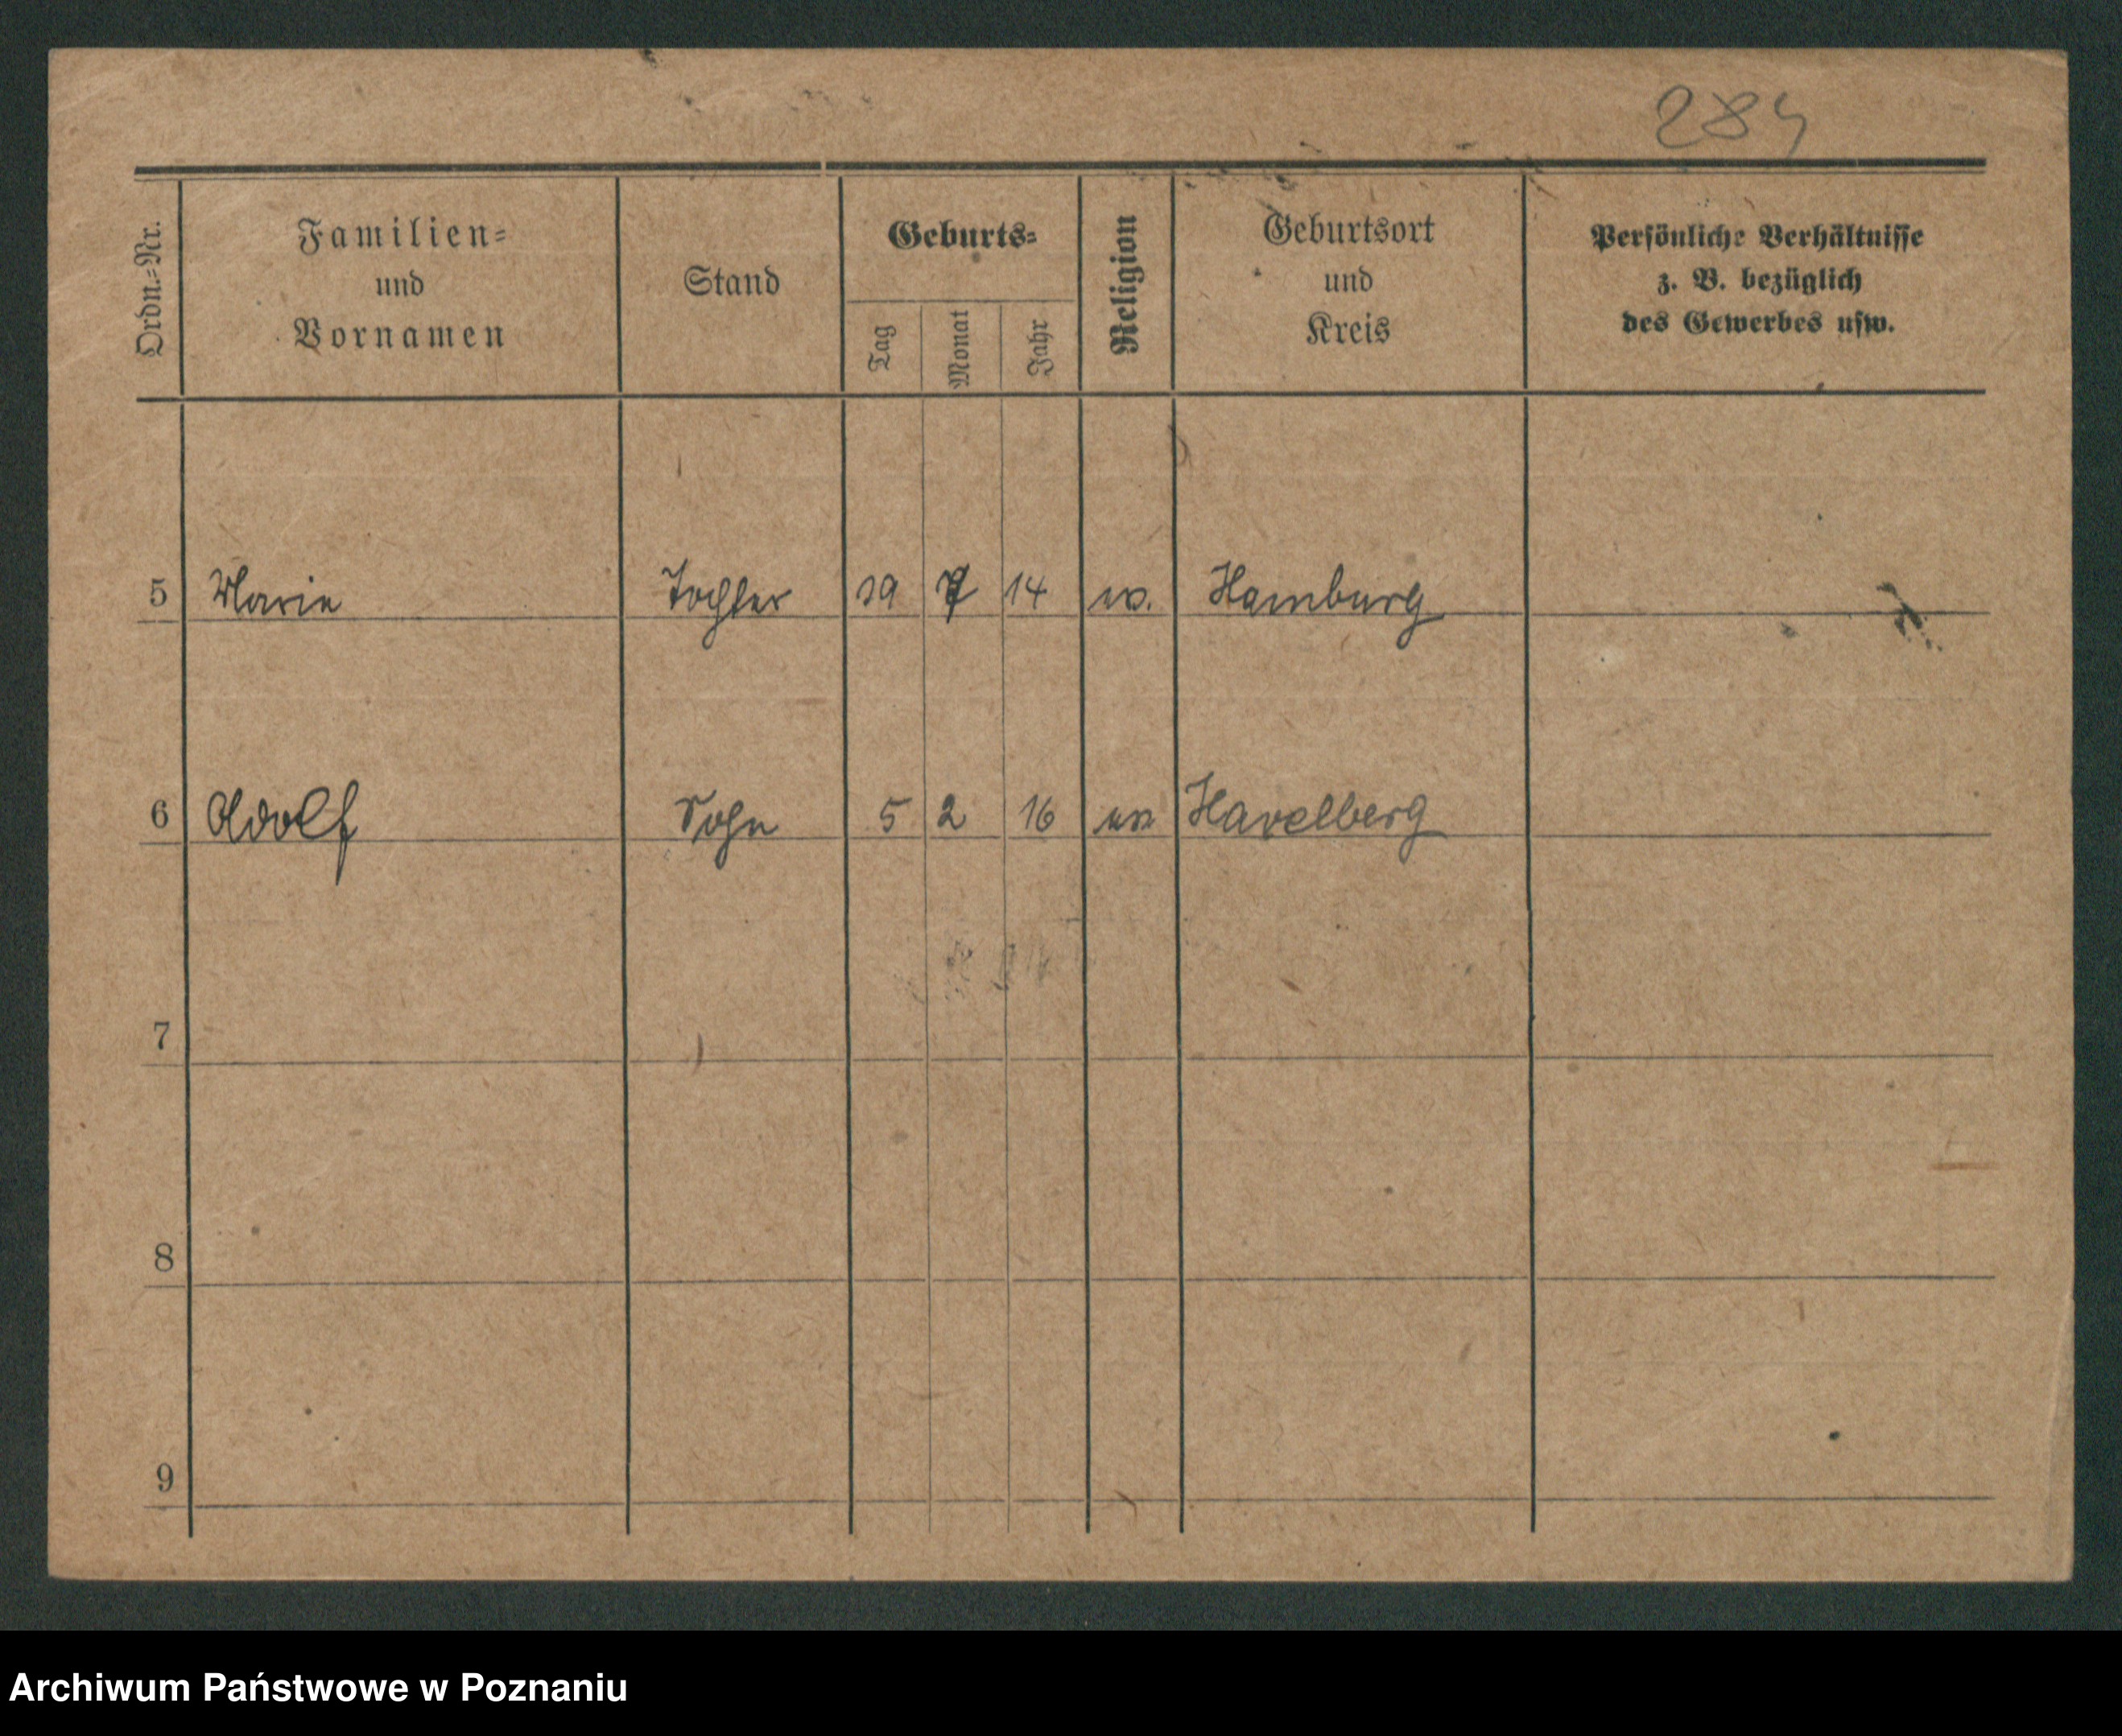 284
Ordn.=Nr.
Familien=
und
Vornamen
Stand
Geburts=
Tag
Monat
Jahr
Religion
Geburtsort
und
Kreis
Persönliche Verhältnisse
z. B. bezüglich
des Gewerbes usw.
5 Marie Tochter 19 7 14 ev. Hamburg
6 Adolf Sohn 5 2 16 ev Havelberg
7
8
9
Archiwum Państwowe w Poznaniu